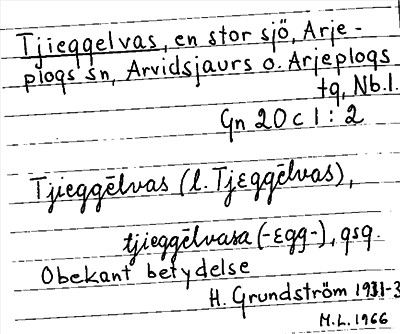 Tjieggelvas, en stor sjö, Arje-
plogs sn, Arvidsjaurs o. Arjeplogs
tg, Nb.l.
Gn 20 c 1 : 2
Tjieggēlvas (l. Tjɛggēlvas),
tjieggēlvasa (-ɛgg-), gsg.
Obekant betydelse
H. Grundström 1931-3
M.L. 1966